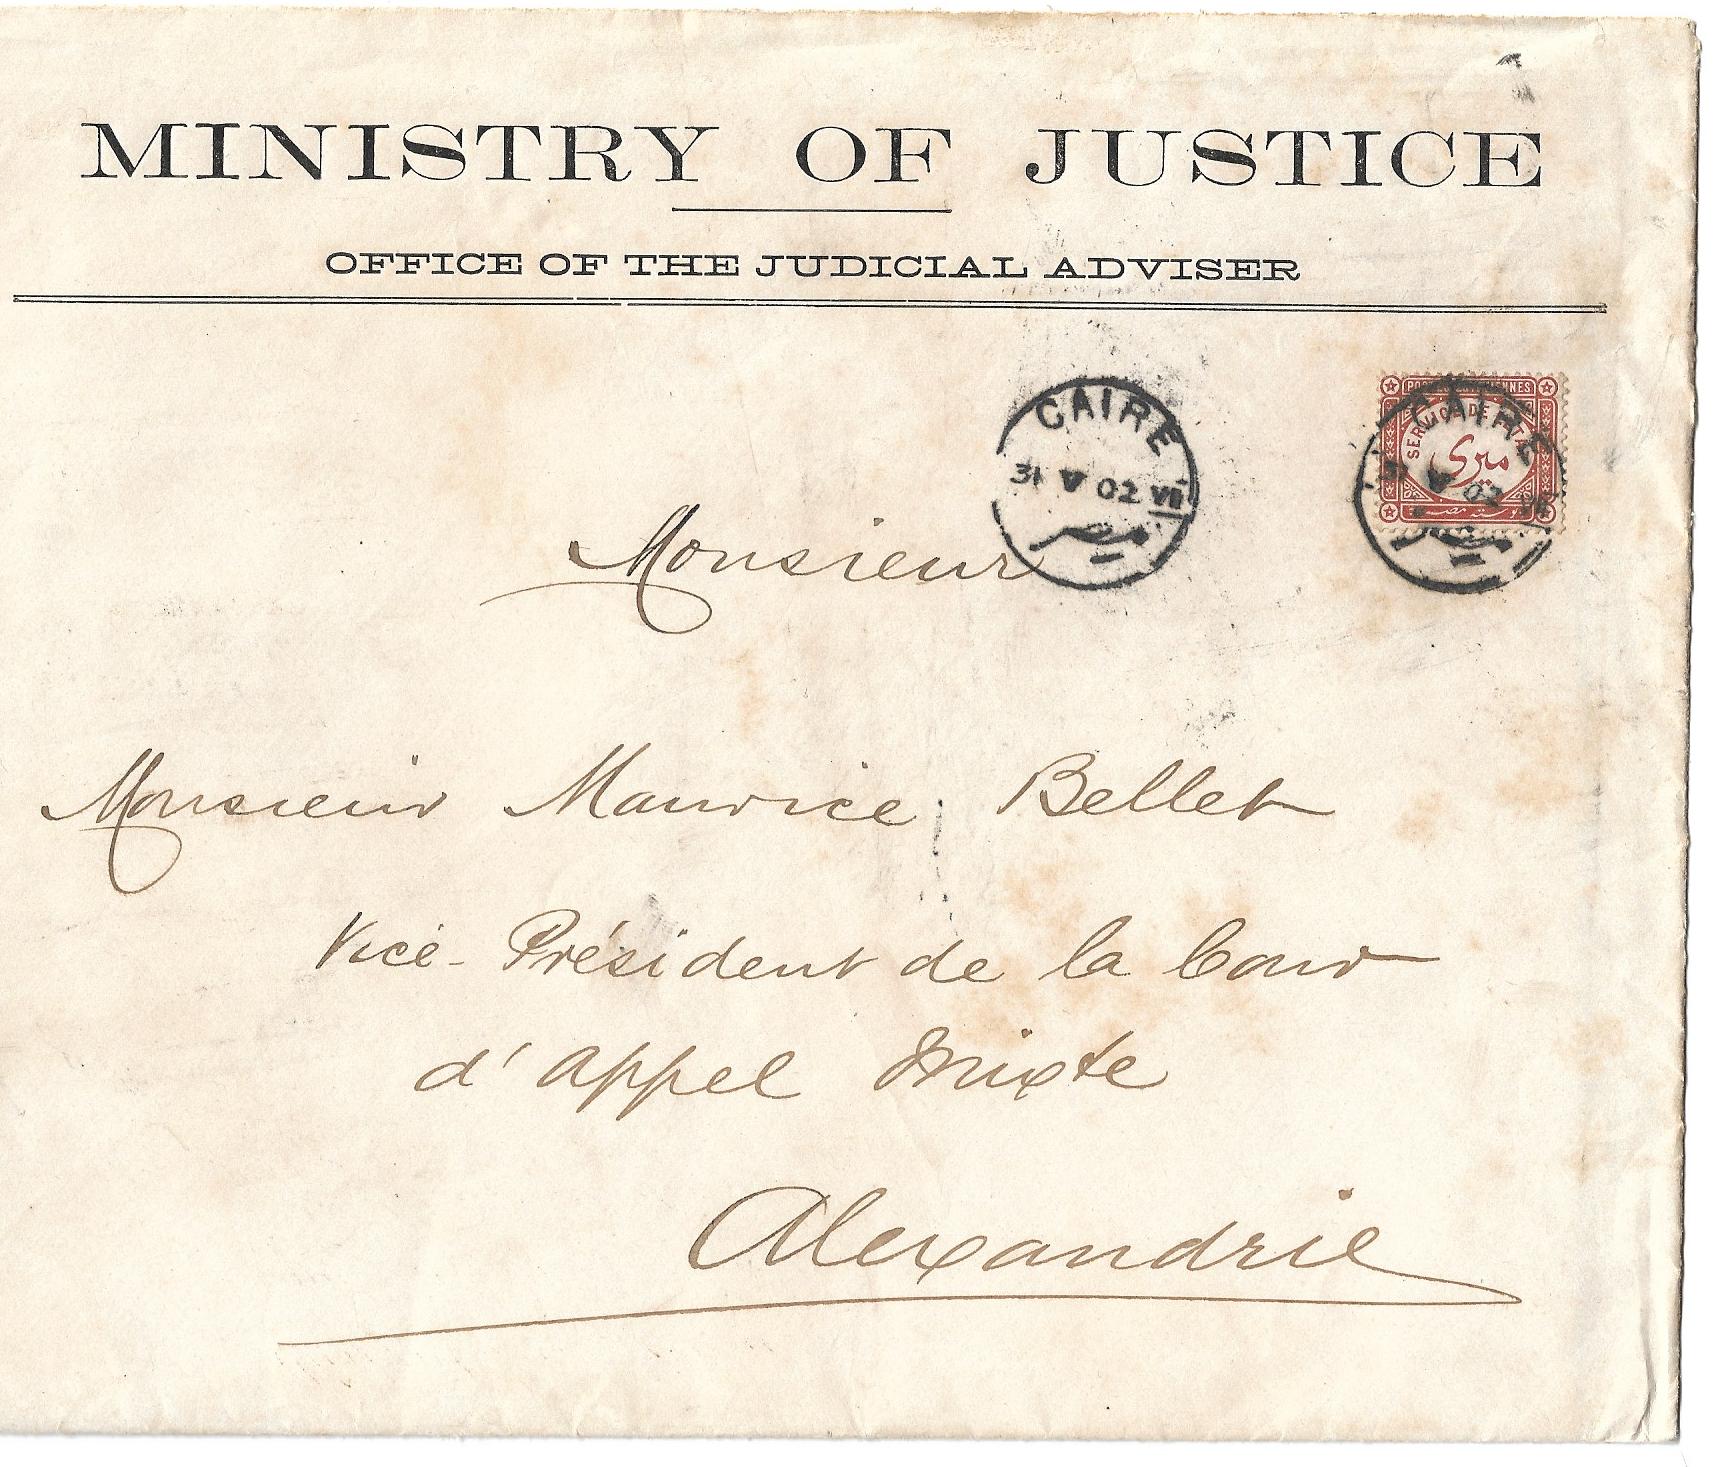 MINISTRY OF JUSTICE
OFFICE OF THE JUDICIAL ADVISER
CAIRE
31 V 02 VII
POSTES EGYPTIENNES
SERVICE DE L'ETAT
ميرى
بوسته مصريه
CAIRE
V 02
Monsieur
Monsieur Maurice Bellet
Vice-Président de la Cour
d'appel Mixte
Alexandrie